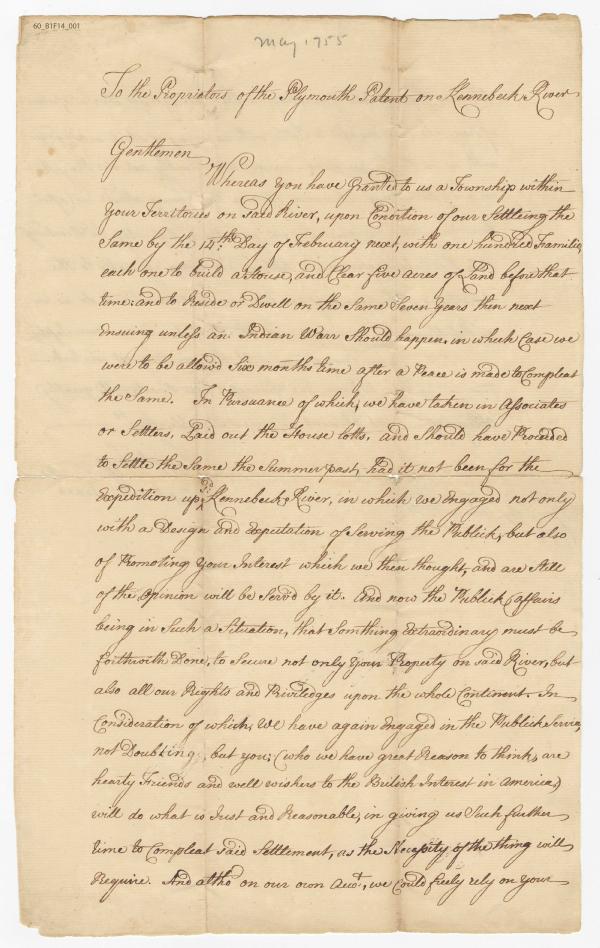 60_B1F14_001
May 1755
To the Proprietors of the Plymouth Patent on Kennebeck River
Gentlemen
Whereas you have Granted to us a Township within
Your Territories on said River, upon Condition of our Settleing the
Same by the 14th. Day of February next, with one hundred Families
each one to build a House, and Clear five acres of Land before that
time: and to Reside or Dwell on the Same Seven Years then next
Ensuing unless an Indian Warr Should happen, in which Case we
were to be allowd Six months time after a Peace is made to Compleat
the Same. In Pursuance of which, we have taken in Associates
or Settlers, Laid out the House lotts, and Should have Proceeded
to Settle the Same the Summer past, had it not been for the
Expedition up sd. Kennebeck River, in which we Engaged not only
with a Design and Expectation of Serving the Publick, but also
of Promoting Your Interest which we then thought, and are Still
of the opinion will be Servd by it. And now the Publick affairs
being in Such a Situation, that Somthing Extraordinary must be
forthwith Done, to Secure not only Your Property on said River, but
also all our Rights and Priviledges upon the whole Continent. In
Consideration of which, We have again Engaged in the Publick Service,
not Doubting, but you; (who we have great Reason to think, are
hearty Friends and well wishers to the British Interest in america,)
will do what is Just and Reasonable, in giving us Such further
time to Compleat said Settlement, as the Necessity of the thing will
Require. And altho on our own Acct., we Could freely rely on Your